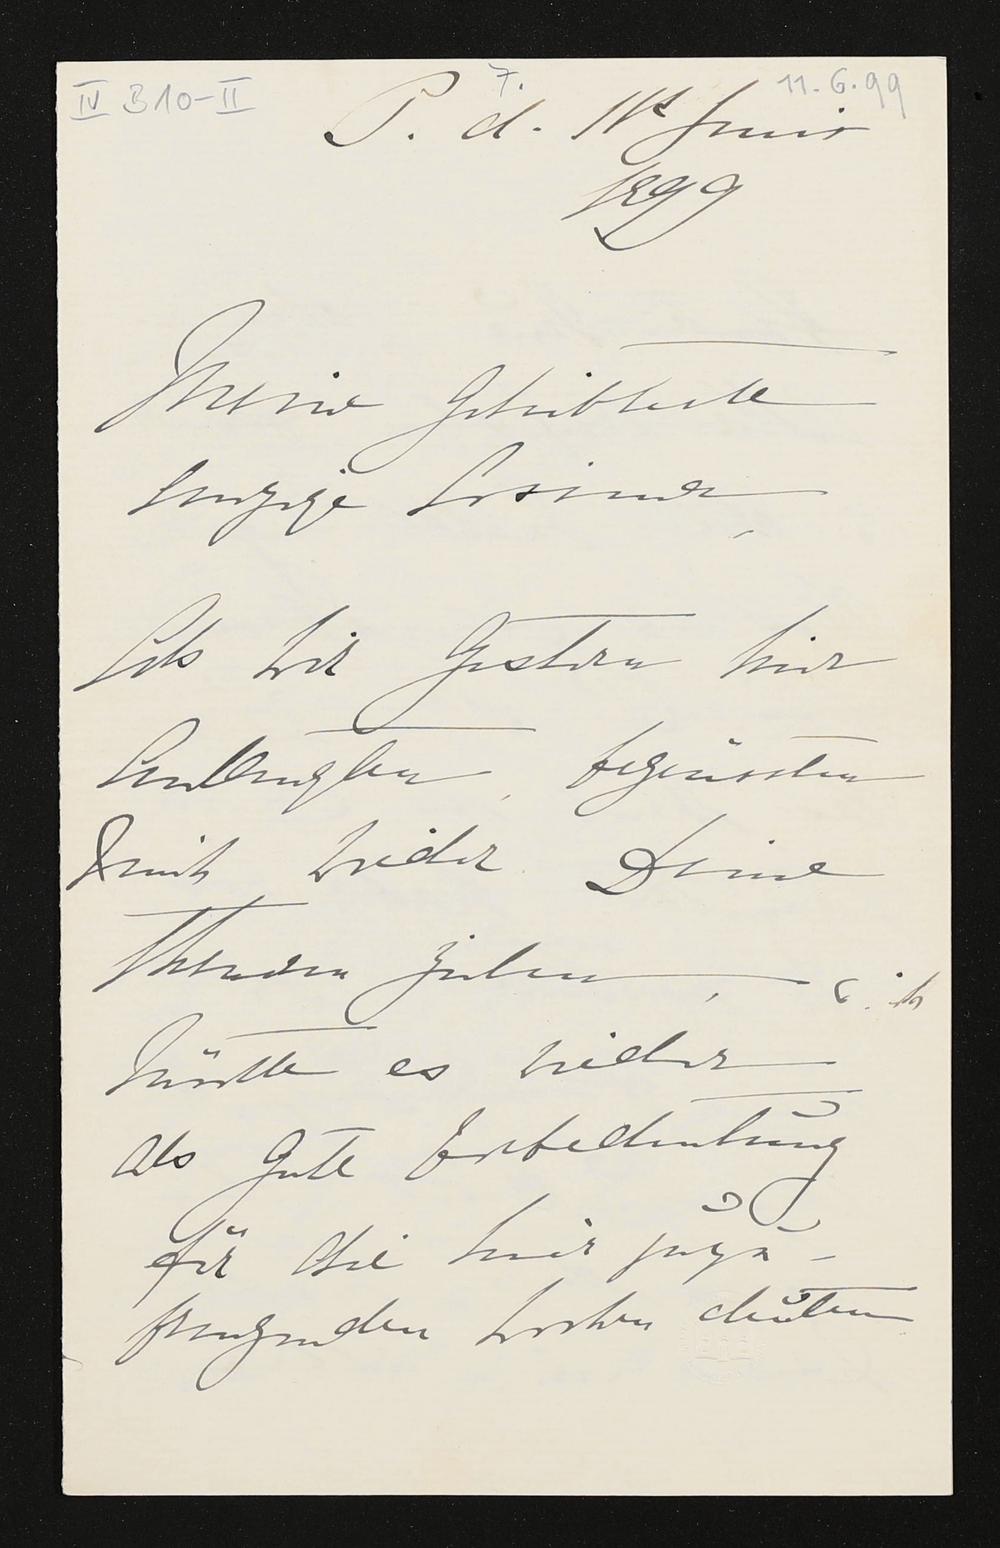 IV B 10-II
7.
11.6.99
P. d. 11t Juni
1899
Meine Geliebteste
einzige Cosima,
Als wir Gestern hier
Anlangten, begrüssten
mich wieder Deine
Theuren Zeilen, u. ich
möchte es wieder
als gute Vorbedeutung
für die hier zuzu-
bringenden Wochen deuten